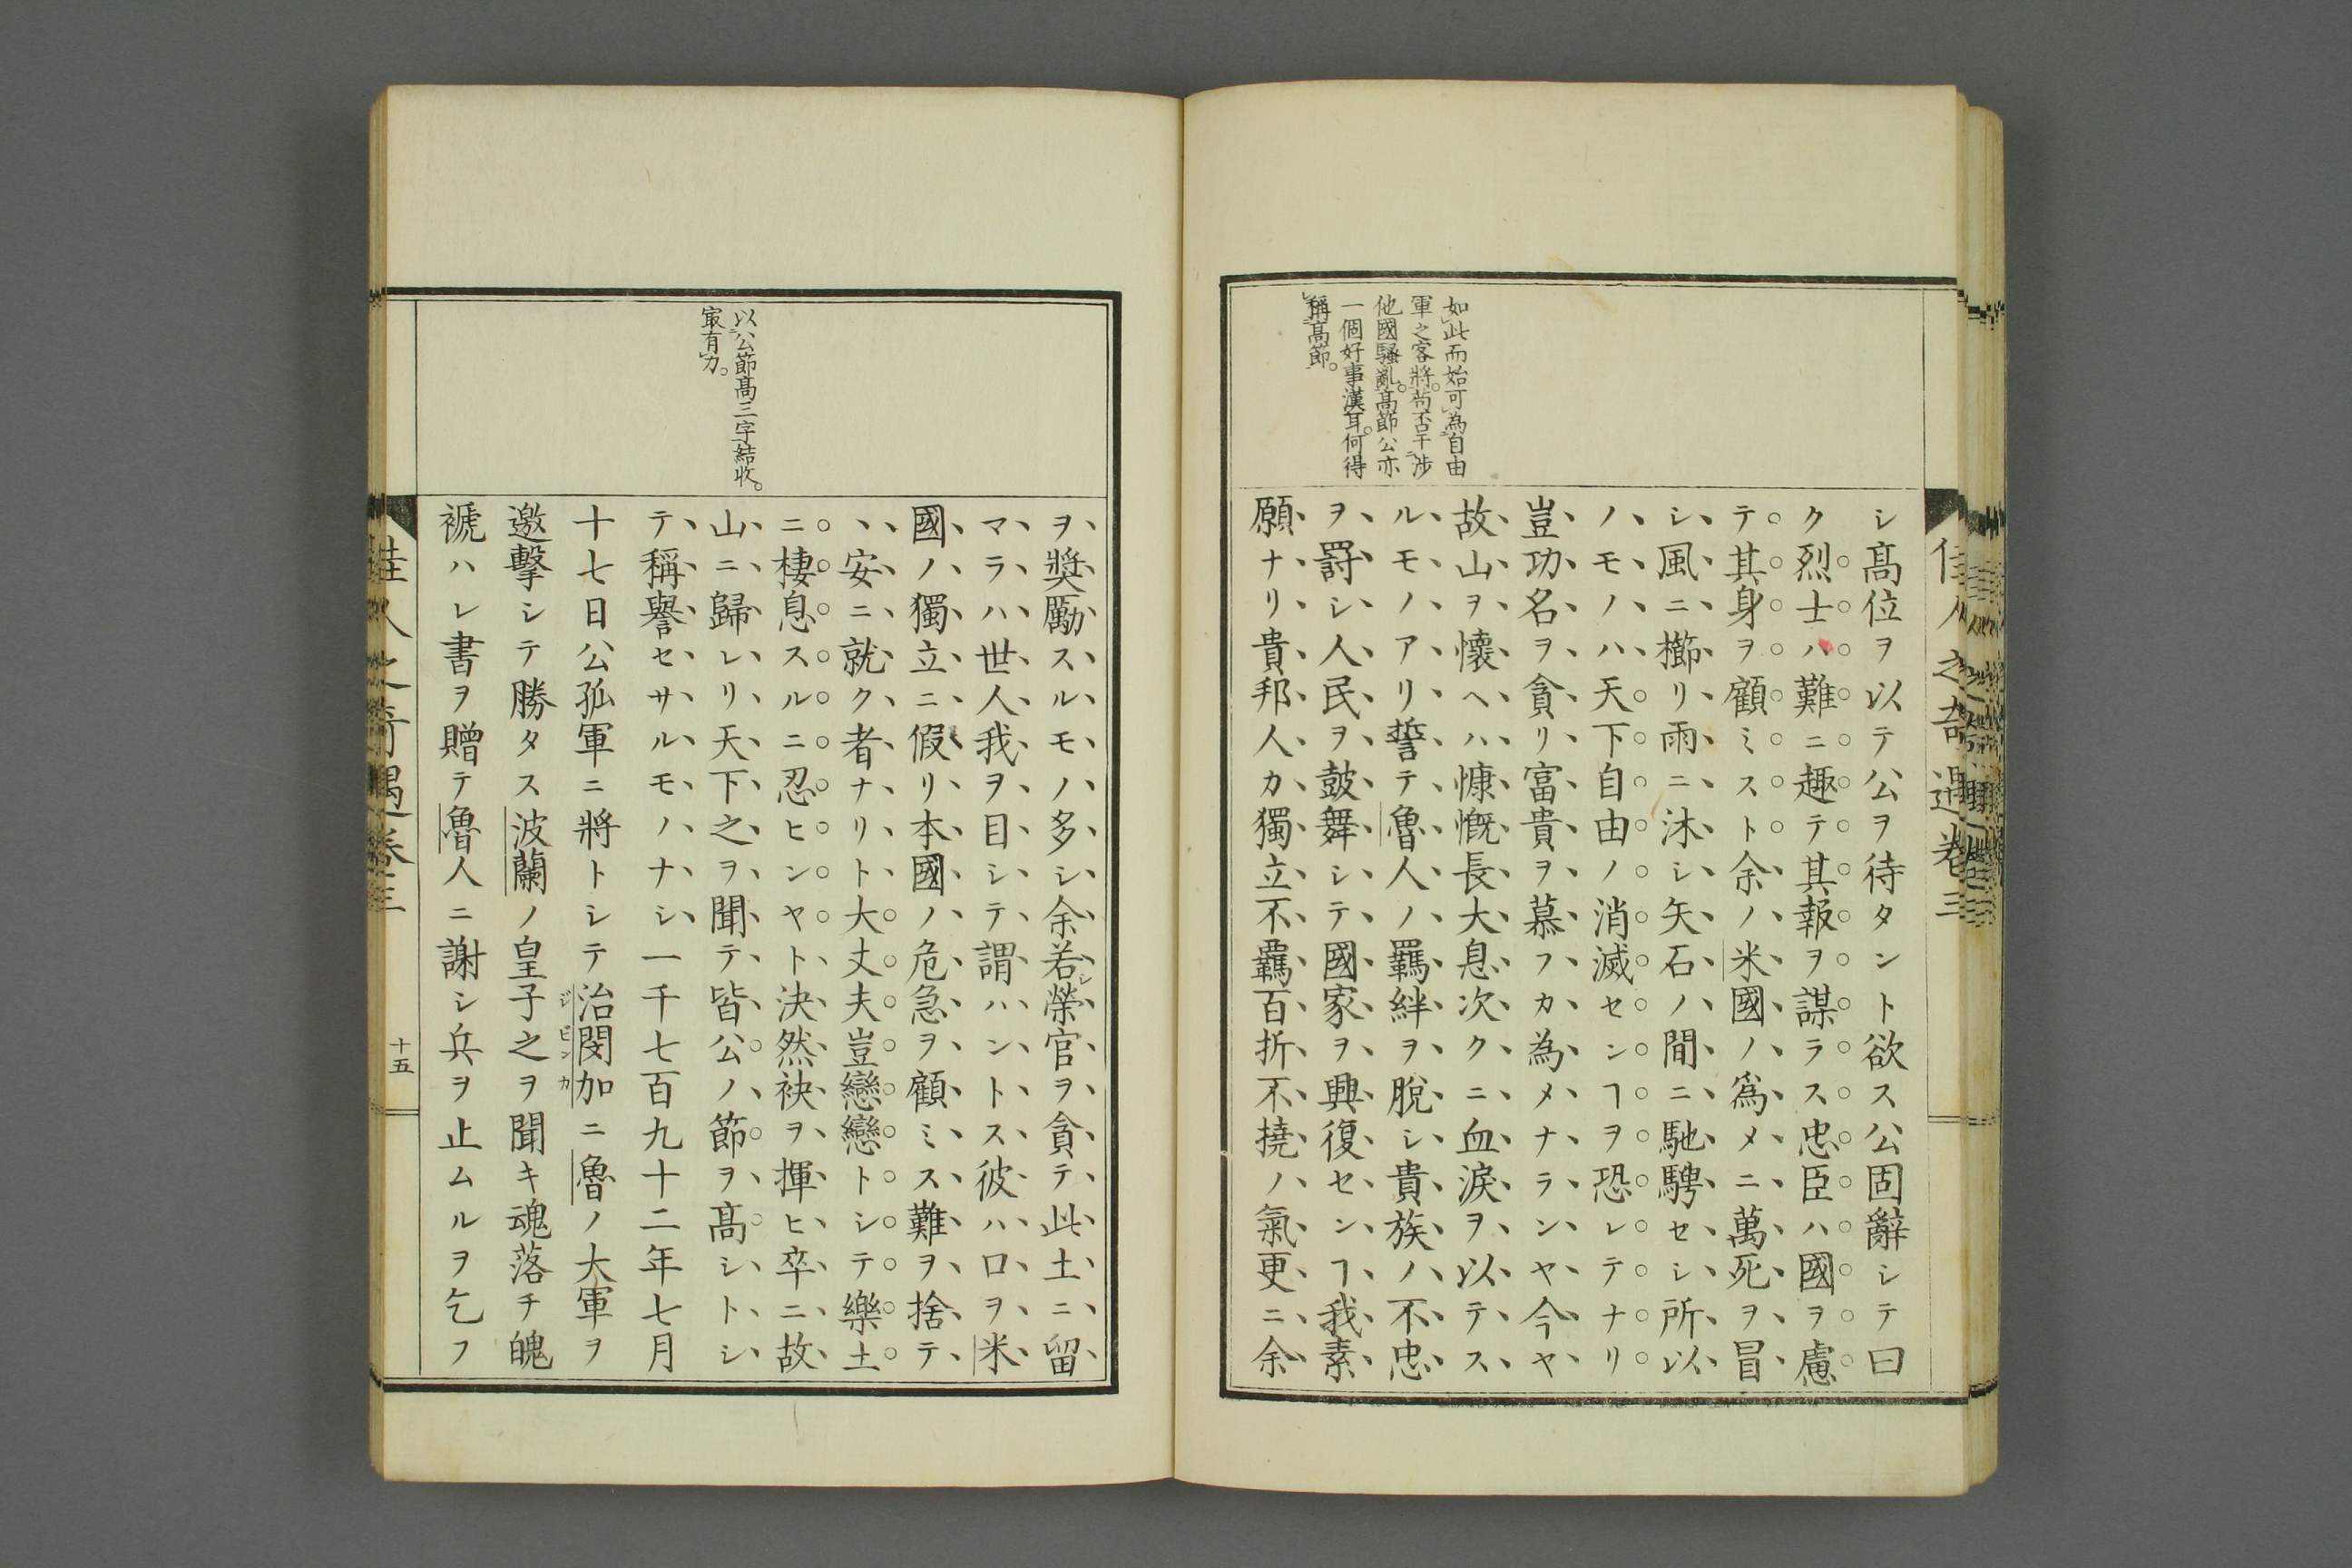 佳人之奇遇卷三
如此而始可為自由
軍之客將。苟否干涉
他國騷亂。高節公亦
一個好事漢耳。何得
稱高節。
シ高位ヲ以テ公ヲ待タント欲ス公固辭シテ曰
ク烈士ハ難ニ趣テ其報ヲ謀ラス忠臣ハ國ヲ慮
テ其身ヲ顧ミスト余ノ米國ノ爲メニ萬死ヲ冒
シ風ニ櫛リ雨ニ沐シ矢石ノ間ニ馳騁セシ所以
ノモノハ天下自由ノ消滅センヿヲ恐レテナリ
豈功名ヲ貪リ富貴ヲ慕フカ為メナランヤ今ヤ
故山ヲ懷ヘハ慷慨長大息次クニ血淚ヲ以テス
ルモノアリ誓テ魯人ノ羈絆ヲ脫シ貴族ノ不忠
ヲ罸シ人民ヲ鼓舞シテ國家ヲ興復センヿ我素
願ナリ貴邦人カ獨立不羈百折不撓ノ氣更ニ余
以公節高三字結收。
㝡有力。
ヲ獎勵スルモノ多シ余若シ榮官ヲ貪テ此土ニ留
マラハ世人我ヲ目シテ謂ハントス彼ハ口ヲ米
國ノ獨立ニ假リ本國ノ危急ヲ顧ミス難ヲ捨テ
、安ニ就ク者ナリト大丈夫豈戀戀トシテ樂土
ニ棲息スルニ忍ヒンヤト決然袂ヲ揮ヒ卒ニ故
山ニ歸レリ天下之ヲ聞テ皆公ノ節ヲ高シトシ
テ稱譽セサルモノナシ一千七百九十二年七月
十七日公孤軍ニ將トシテ治閔加ニ魯ノ大軍ヲ
ジビンカ
邀擊シテ勝タス波蘭ノ皇子之ヲ聞キ魂落チ魄
褫ハレ書ヲ贈テ魯人ニ謝シ兵ヲ止ムルヲ乞フ
佳人之奇遇卷三
十五